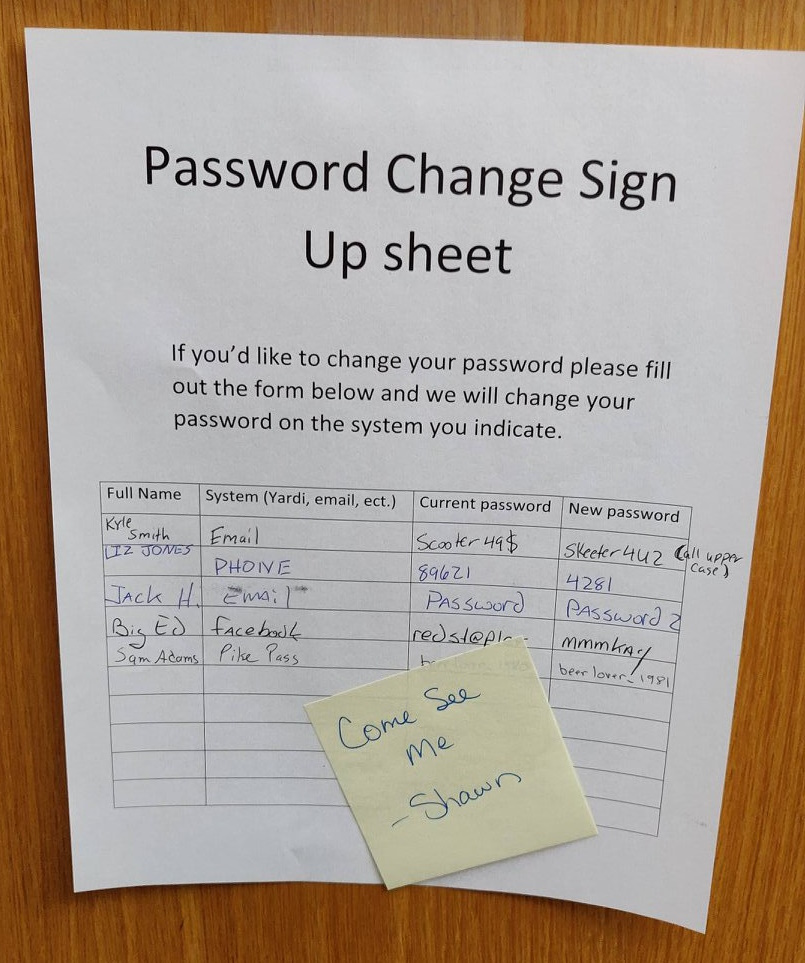 Password Change Sign
Up sheet
If you'd like to change your password please fill
out the form below and we will change your
password on the system you indicate.
Full Name System (Yardi, email, ect.) Current password New password
Kyle
Smith Email Scooter49$ Skeeter4U2 (all upper
case)
LIZ JONES PHONE 89621 4281
JACK H. EMAil PASSWORD PASSWORD 2
Big ED facebook mmmkAy
Sam Adams Pike Pass beerlover_1981
Come See
Me
-Shawn